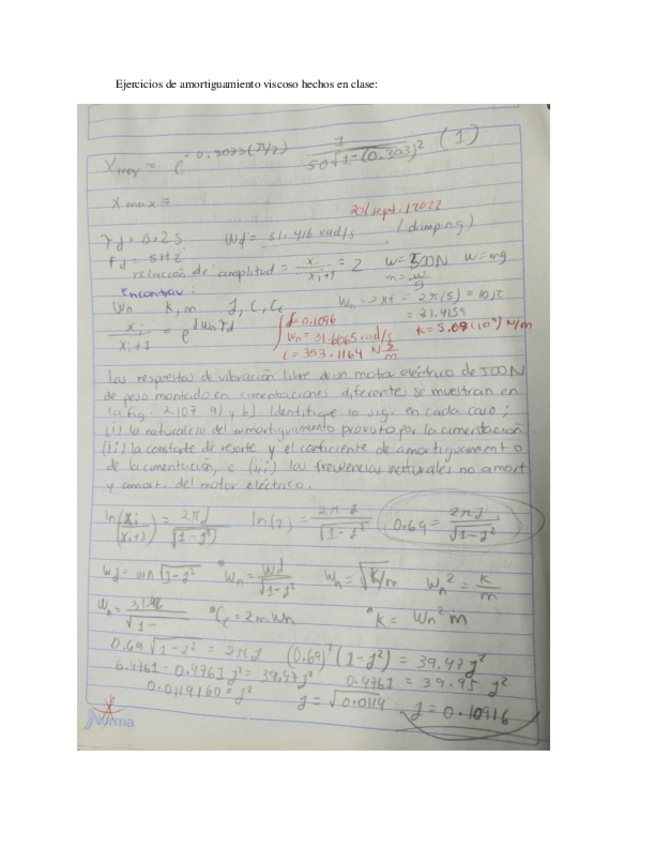 Ejercicios de amortiguamiento viscoso hechos en clase:
X max = e^-0.3033(π/2) 1/50√1-(0.303)² (1)
X max =
20/sept./2022
τd = 0.2 s Wd = 31.416 rad/s (damping)
fd = 5Hz
relación de amplitud = xi/xi+1 = 2 W=500N W=mg
m=W/g
Encontrar:
Wn K, m ζ, C, Cc Wn = 2πf = 2π(5) = 10π
= 31.4159
xi/xi+1 = e^ζWnτd
ζ=0.1096
Wn=31.6065 rad/s
C=353.1164 N s/m
K=5.09(10⁴) N/m
Las respuestas de vibración libre de un motor eléctrico de 500N
de peso montado en cimentaciones diferentes se muestran en
la fig. 2.107 a) y b). Identifique lo sig. en cada caso;
(i) la naturaleza del amortiguamiento provoto por la cimentación
(ii) la constante de resorte y el coeficiente de amortiguamiento
de la cimentación, e (iii) las frecuencias naturales no amort
y amort. del motor eléctrico.
ln(xi/xi+1) = 2πζ/√1-ζ² ln(2) = 2πζ/√1-ζ² 0.69 = 2πζ/√1-ζ²
Wd = Wn√1-ζ² °Wn = Wd/√1-ζ² Wn = √K/m Wn² = K/m
Wn = 31.416/√1- °Cc = 2mWn °K = Wn²m
0.69√1-ζ² = 2πζ (0.69)²(1-ζ²) = 39.47ζ²
0.4761 - 0.4761ζ² = 39.47ζ² 0.4761 = 39.95 ζ²
0.0119160 = ζ² ζ = √0.0119 ζ = 0.10916
Norma